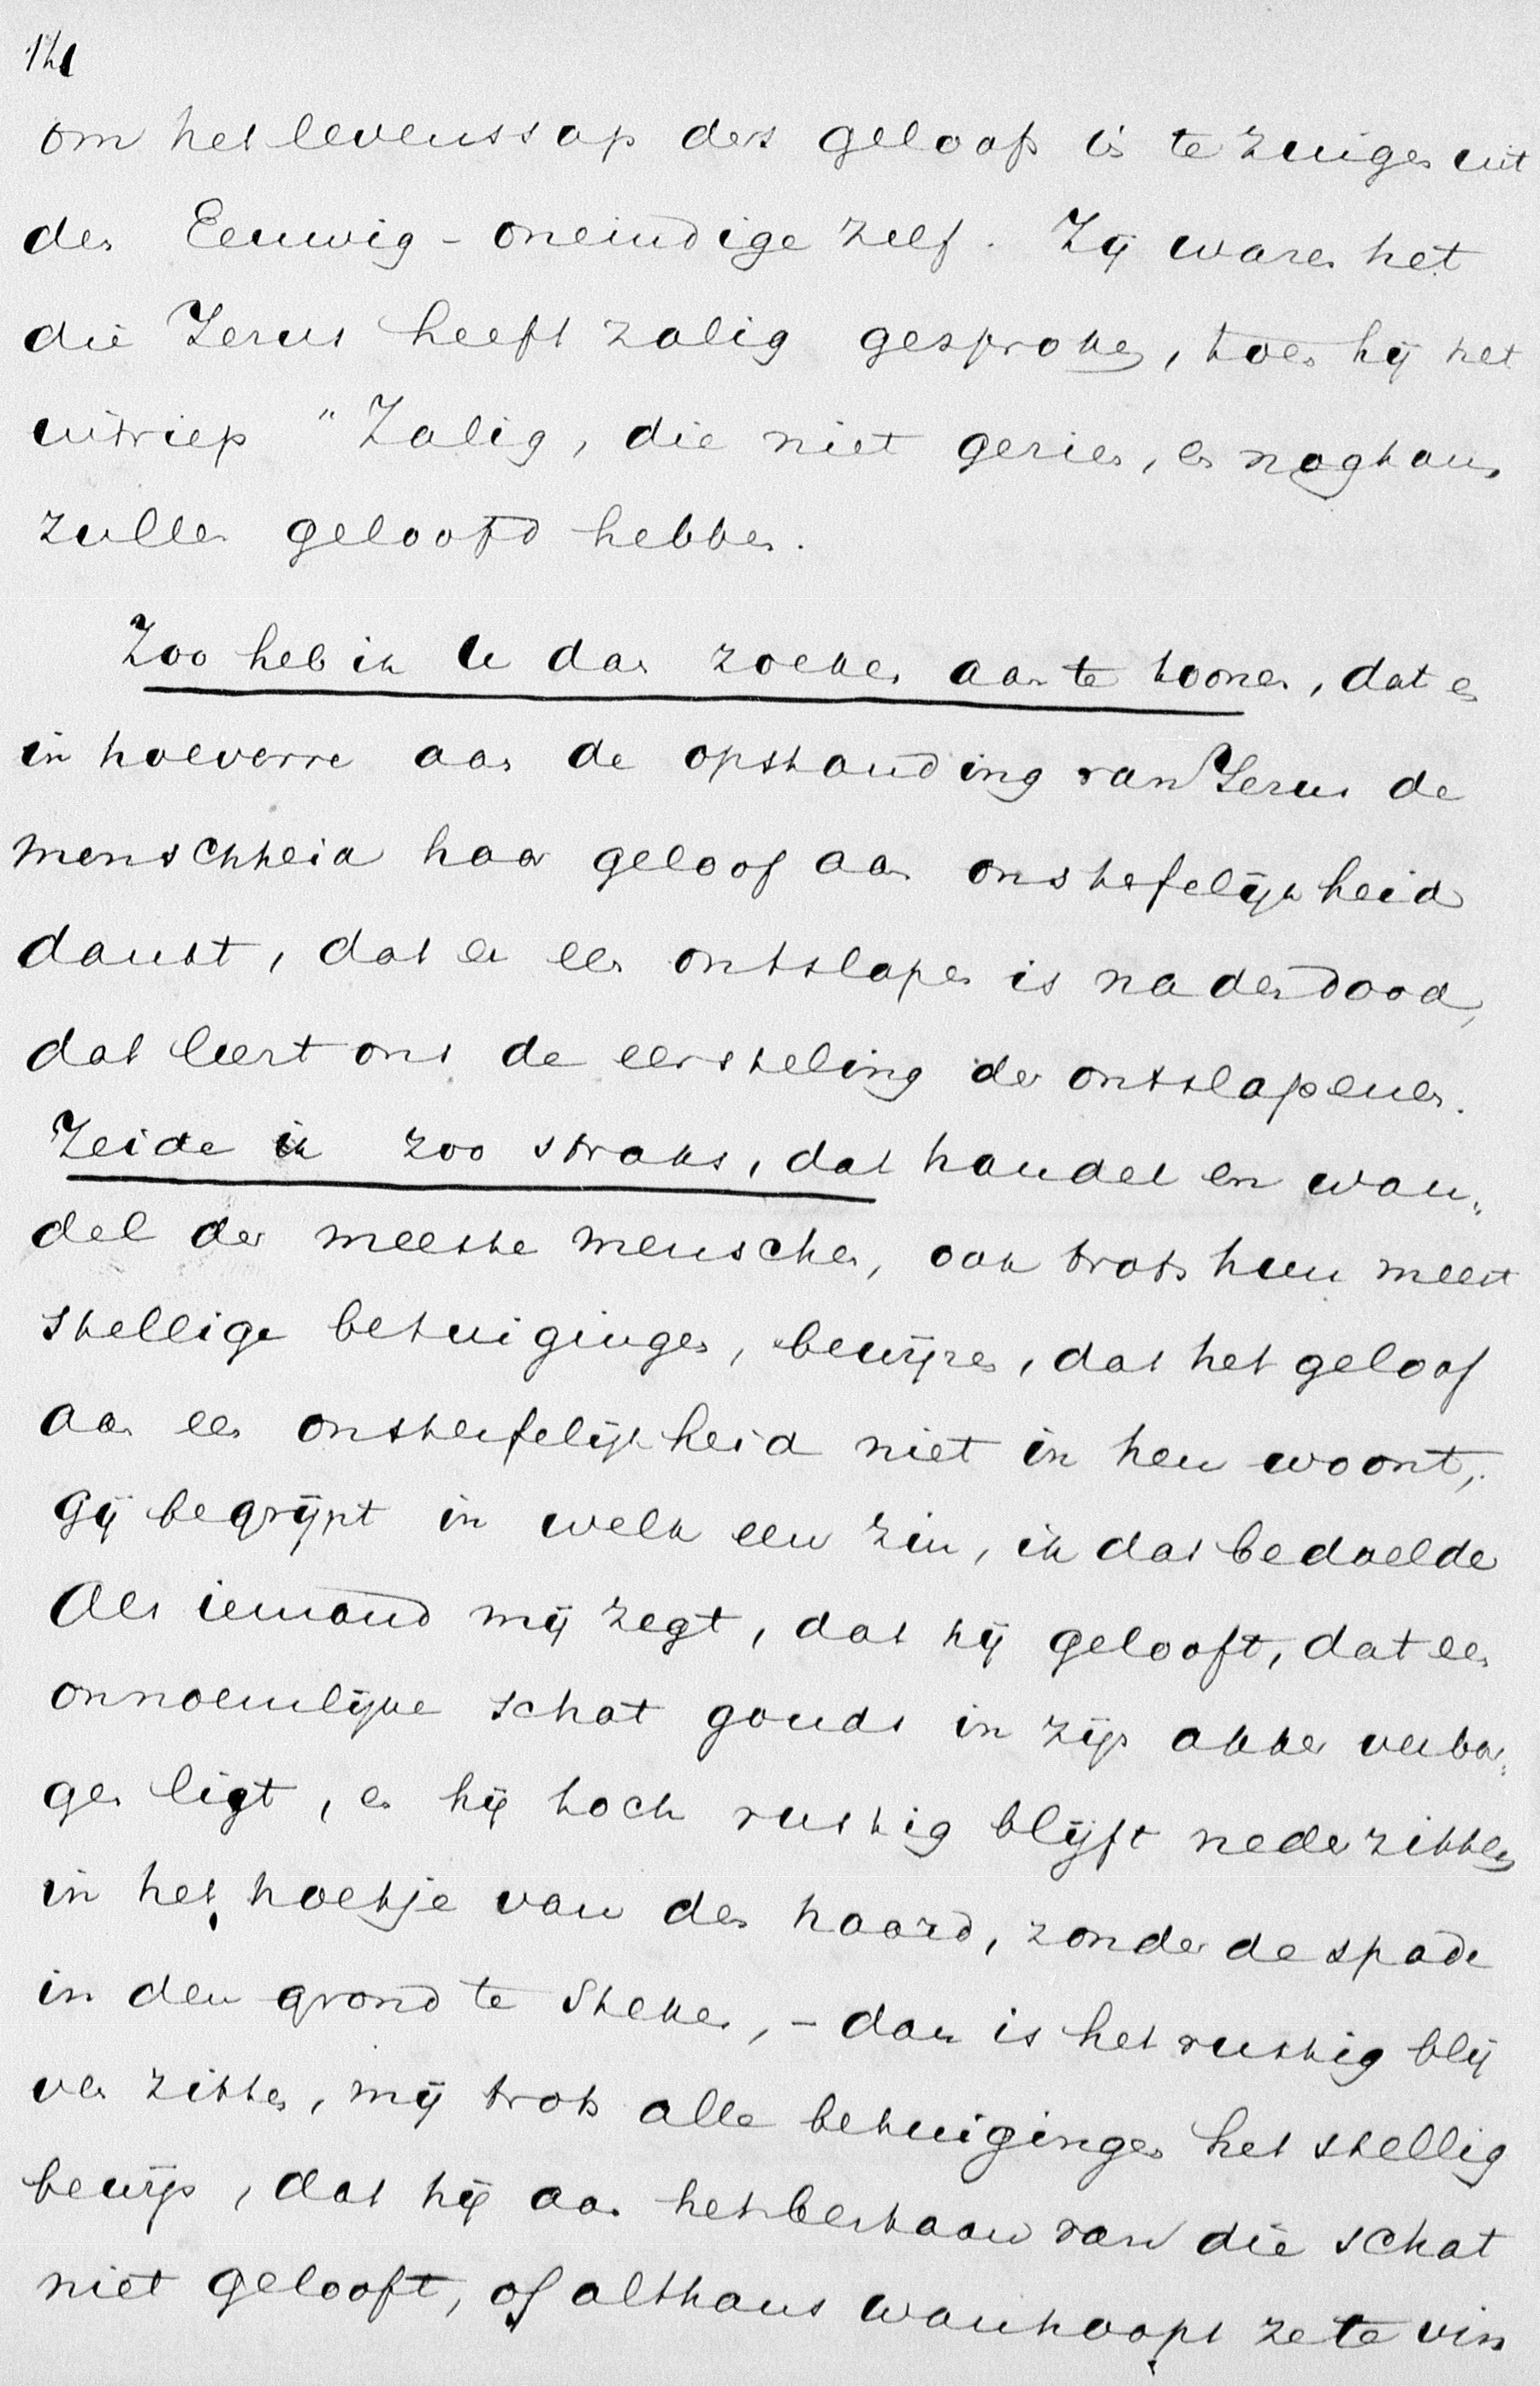 om het levenssap des geloofs in te zuigen uit
den Eeuwig-oneindige zelf. Zij waren het
die Jezus heeft zalig gesproken, toen hij het
uitriep "Zalig, die niet gezien, en nogtans
zullen geloofd hebben.
Zoo heb ik U dan zoeken aan te toonen, dat en
in hoeverre aan de opstanding van Jezus de
menschheid haar geloof aan onsterfelijkheid
dankt, dat er een ontslapen is na den dood,
dat leert ons de eersteling der ontslapenen.
Zeide ik zoo straks, dat handel en wan„
del der meeste menschen, ook trots hun meest
stellige betuigingen, bewijzen, dat het geloof
aan een onsterfelijkheid niet in hen woont,
gij begrijpt in welk een zin, ik dat bedoelde
Als iemand mij zegt, dat hij gelooft, dat een
onnoemlijke schat gouds in zijn akker verbor„
gen ligt, en hij toch rustig blijft nederzitten
in het hoekje van den haard, zonder de spade
in den grond te steken, - dan is het rustig blij
ven zitten, mij trots alle betuigingen het stellig
bewijs, dat hij aan het bestaan van die schat
niet gelooft, of althans wanhoopt ze te vin